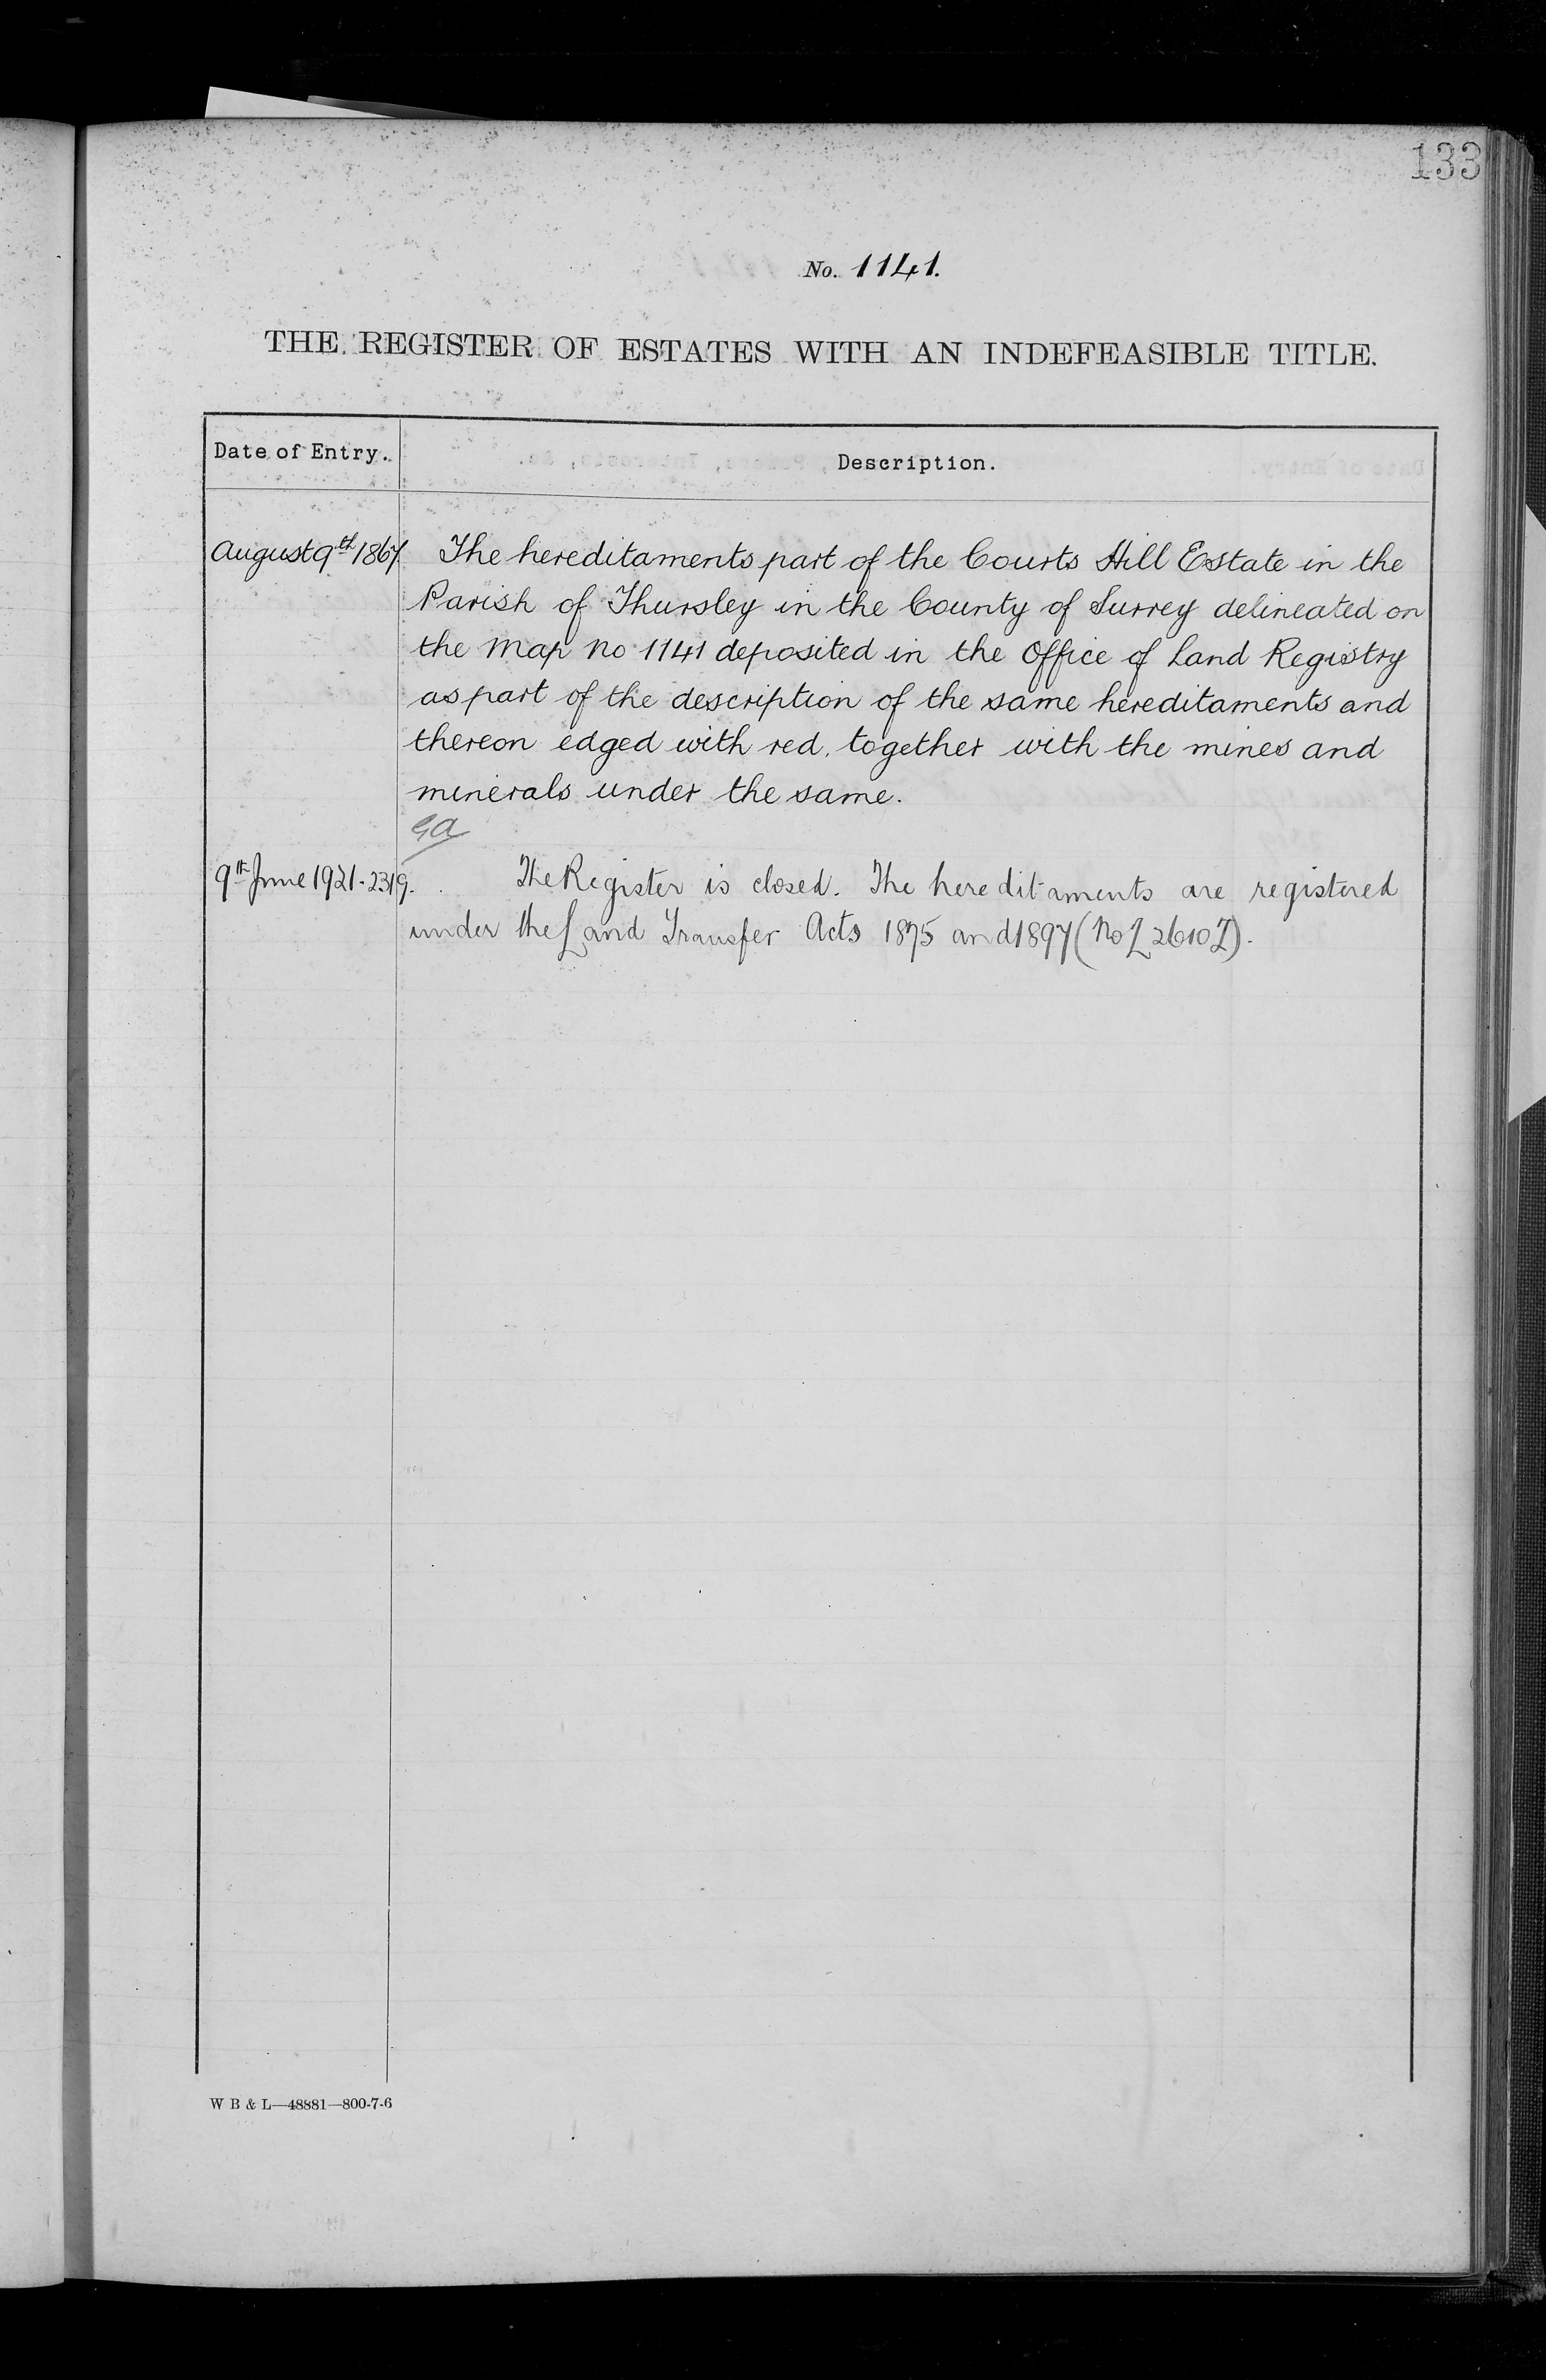 133
No. 1141.
THE REGISTER OF ESTATES WITH AN INDEFEASIBLE TITLE.
Date of Entry. Description.
August 9th 1867 The hereditaments part of the Courts Hill Estate in the
Parish of Thursley in the County of Surrey delineated on
the Map No 1141 deposited in the Office of Land Registry
as part of the description of the same hereditaments and
thereon edged with red, together with the mines and
minerals under the same.
9th June 1921. 2319. The Register is closed. The hereditaments are registered
under the Land Transfer Acts 1875 and 1897 (No
W B & L—48881—800-7-6